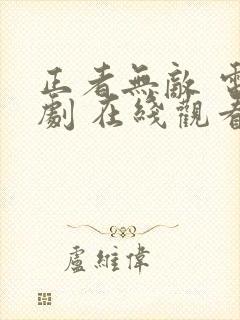 正者無敵 電
劇 在綫觀看
盧維偉